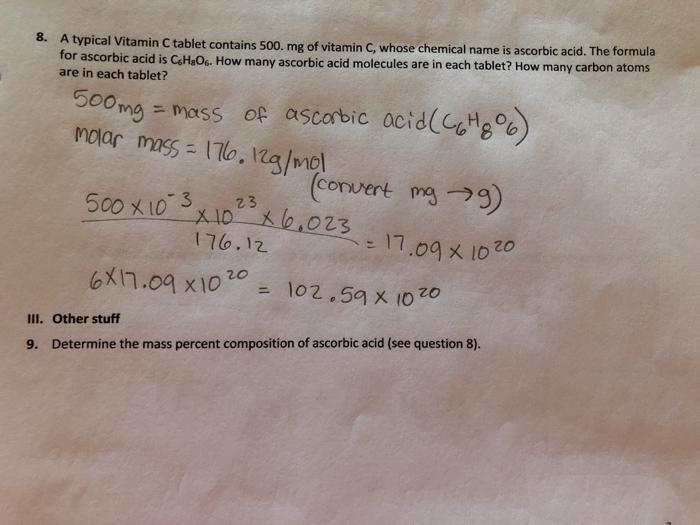 8. A typical Vitamin C tablet contains 500. mg of vitamin C, whose chemical name is ascorbic acid. The formula
for ascorbic acid is C₆H₈O₆. How many ascorbic acid molecules are in each tablet? How many carbon atoms
are in each tablet?
500mg = mass of ascorbic acid (C₆H₈O₆)
molar mass = 176.12g/mol
(convert mg → g)
500 × 10⁻³ × 10²³ × 6.023
176.12
= 17.09 × 10²⁰
6×17.09 × 10²⁰ = 102.59 × 10²⁰
III. Other stuff
9. Determine the mass percent composition of ascorbic acid (see question 8).